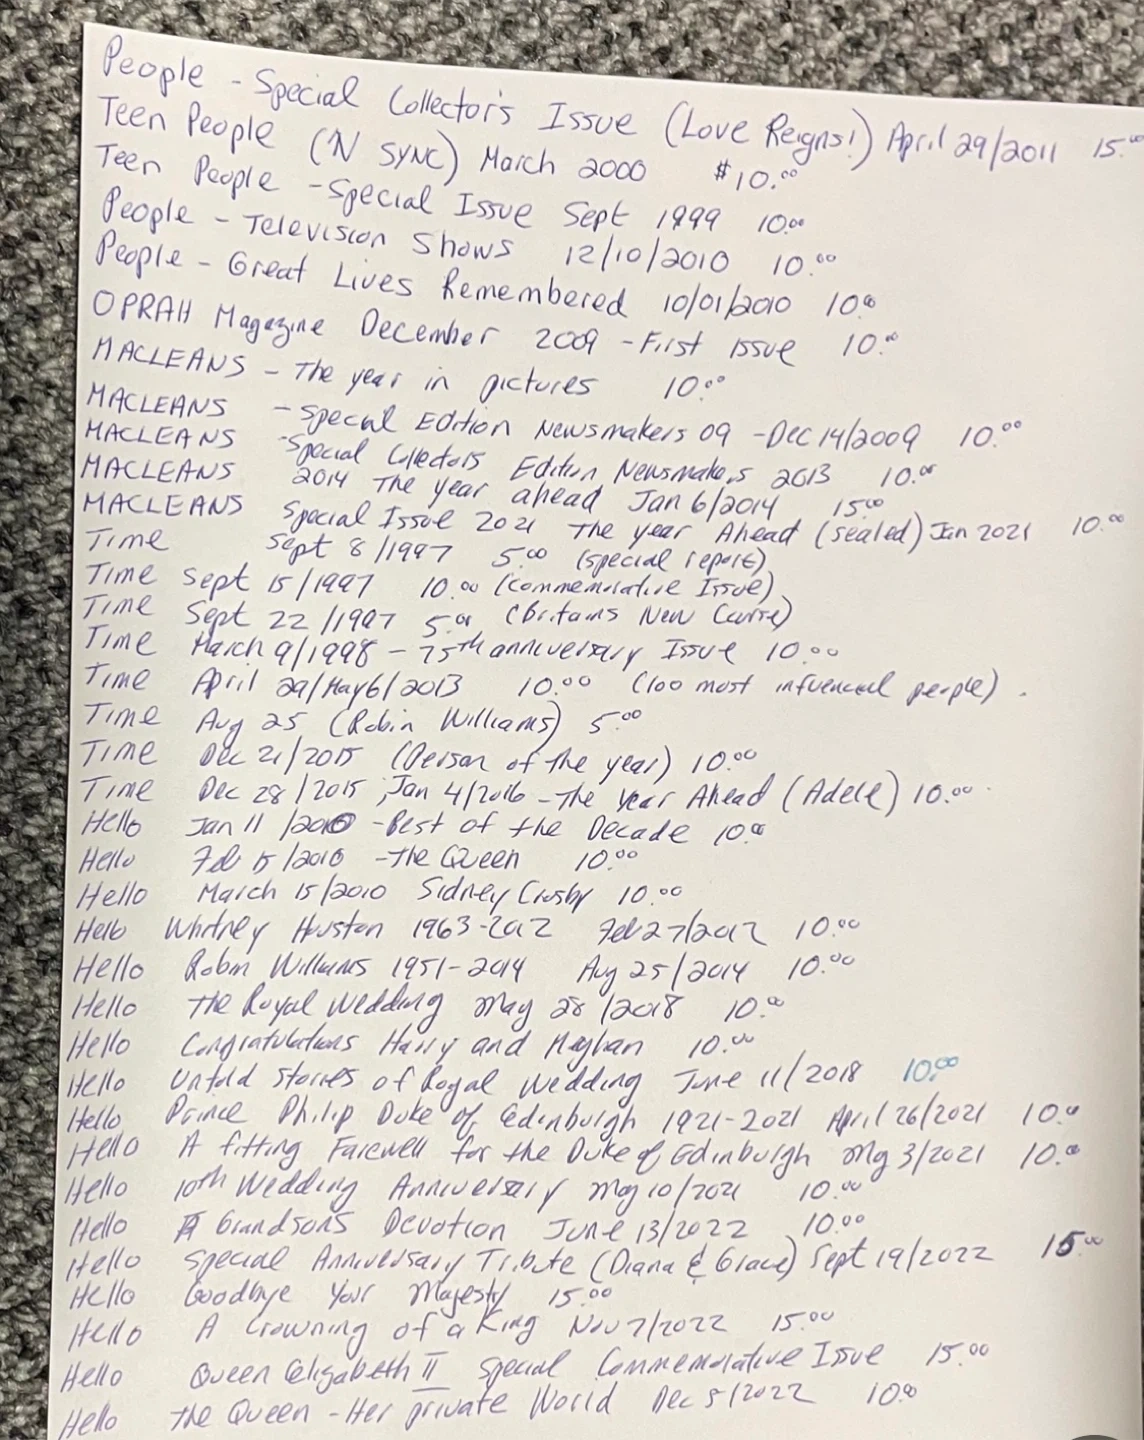 People - Special Collector's Issue (Love Reigns!) April 29/2011 15.00
Teen People ('N SYNC) March 2000 $10.00
Teen People - Special Issue Sept 1999 10.00
People - Television Shows 12/10/2010 10.00
People - Great Lives Remembered 10/01/2010 10.00
OPRAH Magazine December 2009 - First issue 10.00
MACLEANS - The year in pictures 10.00
MACLEANS - Special Edition Newsmakers 09 - Dec 14/2009 10.00
MACLEANS - Special Collectors Edition Newsmakers 2013 10.00
MACLEANS 2014 The year ahead Jan 6/2014 15.00
MACLEANS Special Issue 2021 The year Ahead (sealed) Jan 2021 10.00
Time Sept 8/1997 5.00 (special report)
Time Sept 15/1997 10.00 (commemorative Issue)
Time Sept 22/1997 5.00 (Britains New Course)
Time March 9/1998 - 75th anniversary Issue 10.00
Time April 29/May 6/2013 10.00 (100 most influencial people).
Time Aug 25 (Robin Williams) 5.00
Time Dec 21/2015 (Person of the year) 10.00
Time Dec 28/2015, Jan 4/2016 - The Year Ahead (Adele) 10.00
Hello Jan 11/2010 - Best of the Decade 10.00
Hello Feb 15/2010 - The Queen 10.00
Hello March 15/2010 Sidney Crosby 10.00
Hello Whitney Huston 1963-2012 Feb 27/2012 10.00
Hello Robin Williams 1951-2014 Aug 25/2014 10.00
Hello The Royal Wedding May 28/2018 10.00
Hello Congratulations Harry and Meghan 10.00
Hello Untold stories of Royal Wedding June 11/2018 10.00
Hello Prince Philip Duke of Edinburgh 1921-2021 April 26/2021 10.00
Hello A fitting Farewell for the Duke of Edinburgh May 3/2021 10.00
Hello 10th Wedding Anniversary May 10/2021 10.00
Hello A Grandsons Devotion June 13/2022 10.00
Hello Special Anniversary Tribute (Diana & Grace) Sept 19/2022 15.00
Hello Goodbye Your Majesty 15.00
Hello A Crowning of a King Nov 7/2022 15.00
Hello Queen Elizabeth II Special Commemorative Issue 15.00
Hello The Queen - Her private World Dec 5/2022 10.00